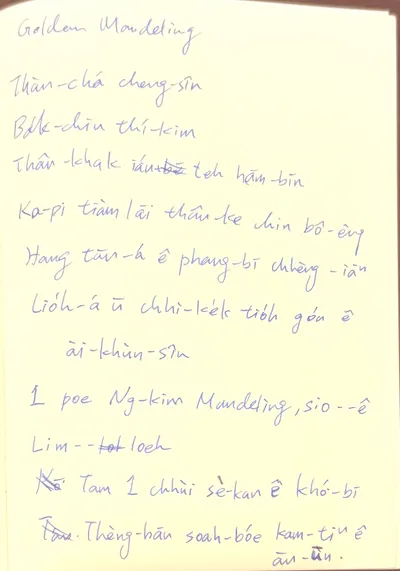 Golden Mandeling
Thàn-chá cheng-sîn
Ba̍k-chiu thí-kim
Thâu-khak iáu teh hām-bîn
Ka-pi tiàm lāi thâu-ke chin bô-êng
Hang tāu-á ê phang-bī chhèng-iāⁿ
Lio̍h-á ū chhì-kek tio̍h góa ê
ài-khùn-sîn
1 poe N̂g-kim Mandeling, sio--ê
Lim--loeh
Tam 1 chhùi sè-kan ê khó-bī
Thèng-hāu soah-bóe kam-tiⁿ ê
àn-ún.